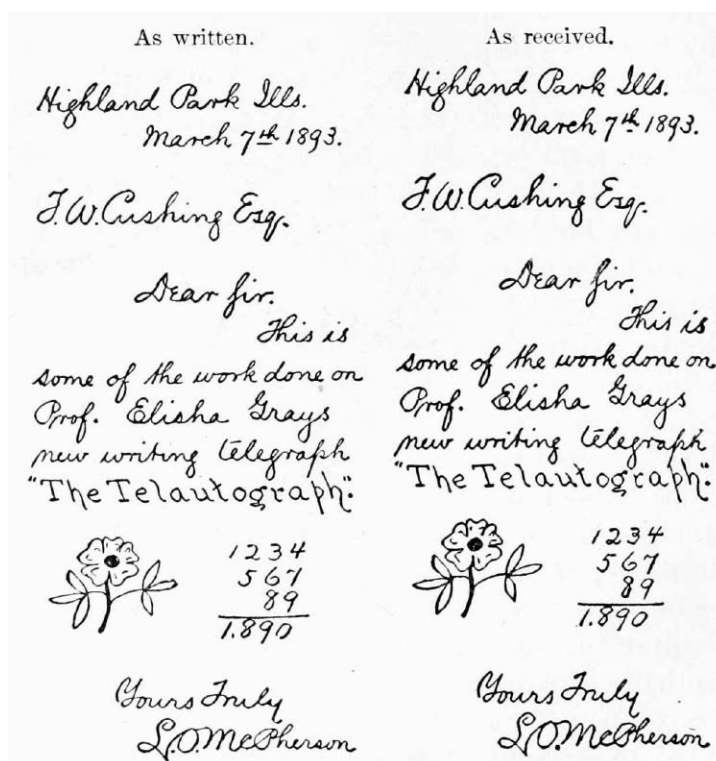 As written.
Highland Park Ills.
March 7th 1893.
F.W. Cushing Esq.
Dear Sir.
This is
some of the work done on
Prof. Elisha Grays
new writing telegraph
"The Telautograph".
1234
567
89
1.890
Yours Truly
L.O. McPherson
As received.
Highland Park Ills.
March 7th 1893.
F.W. Cushing Esq.
Dear Sir.
This is
some of the work done on
Prof. Elisha Grays
new writing telegraph
"The Telautograph".
1234
567
89
1.890
Yours Truly
L.O. McPherson